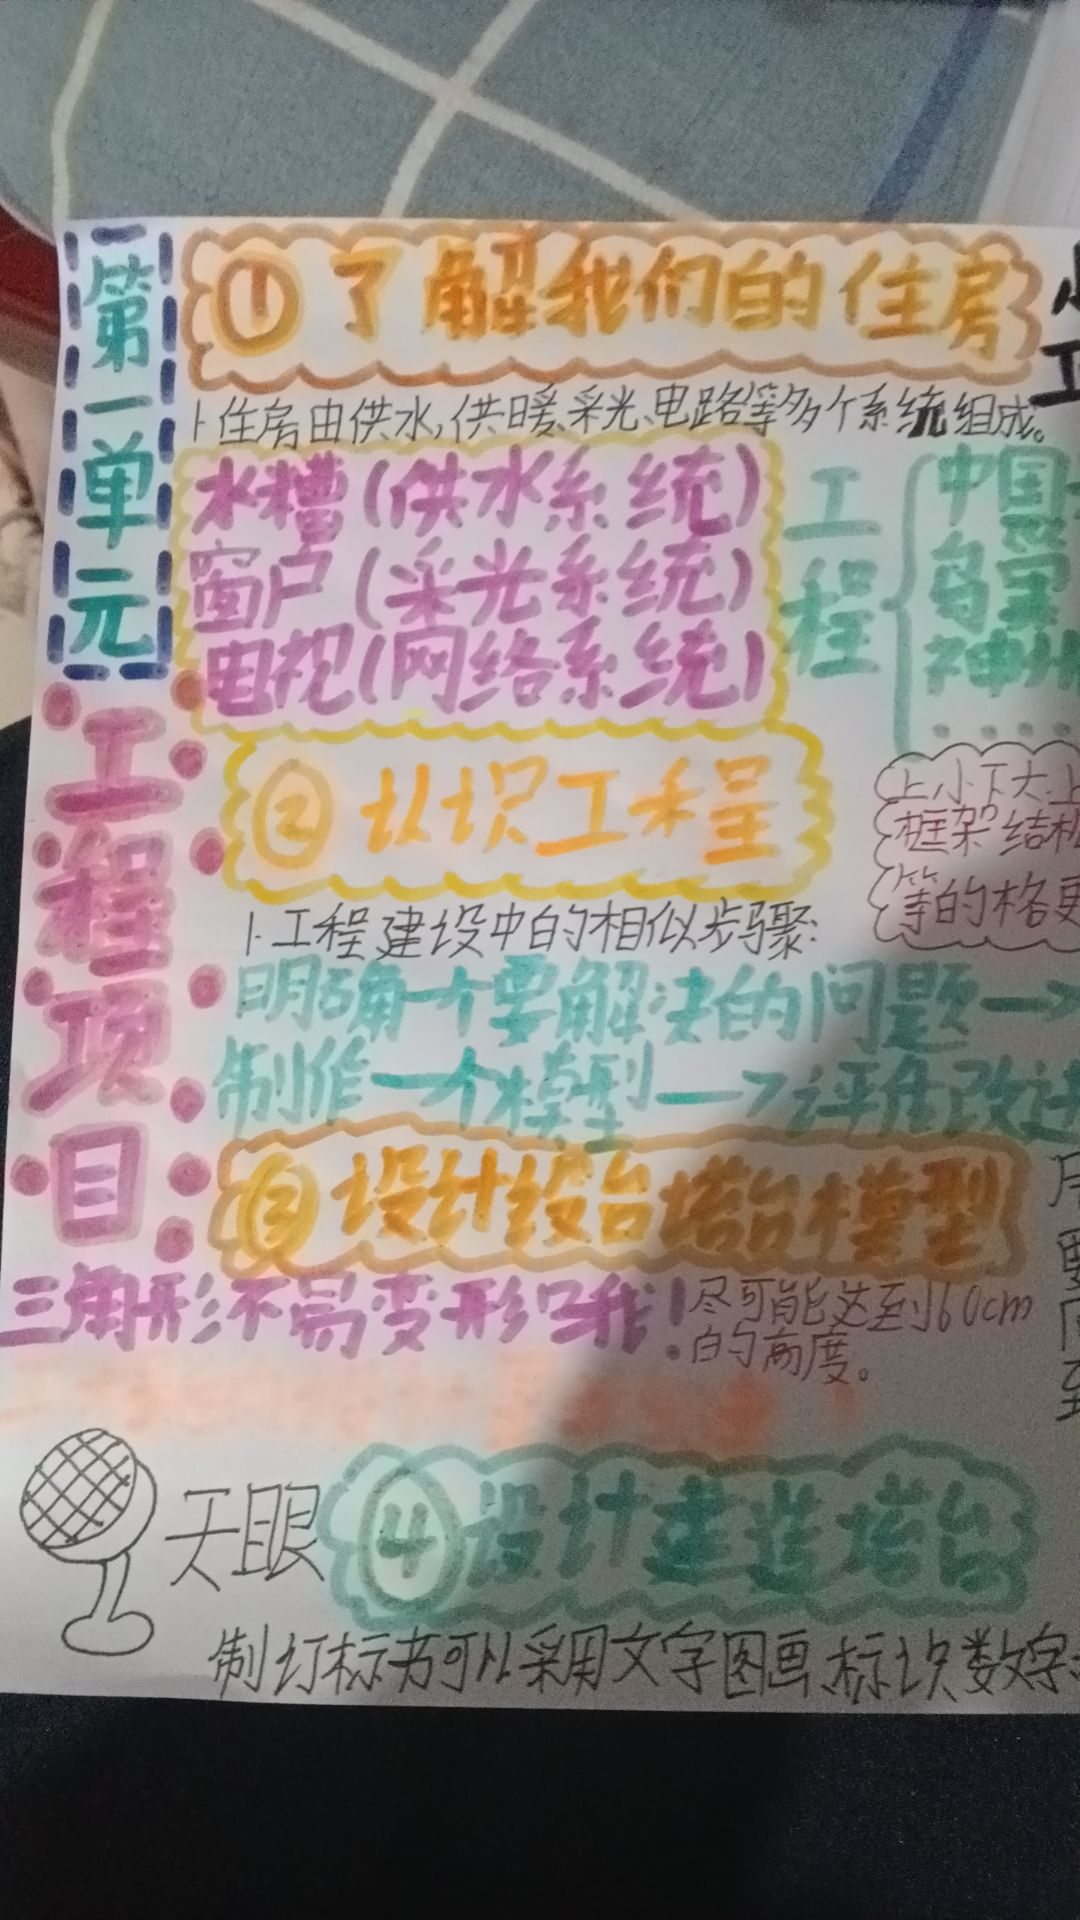 第一单元
工程项目
①了解我们的住房
1.住房由供水,供暖、采光、电路等多个系统组成。
水槽(供水系统)
窗户(采光系统)
电视(网络系统)
工程
中国
神舟
……
②认识工程
上小下大上
框架结构
等的格更
1.工程建设中的相似步骤:
明确一个要解决的问题→
制作一个模型→评估改进
③设计塔台模型
三角形不易变形哦!
尽可能达到60cm
的高度。
天眼
④设计建造塔台
制订标书可以采用文字图画标识数字